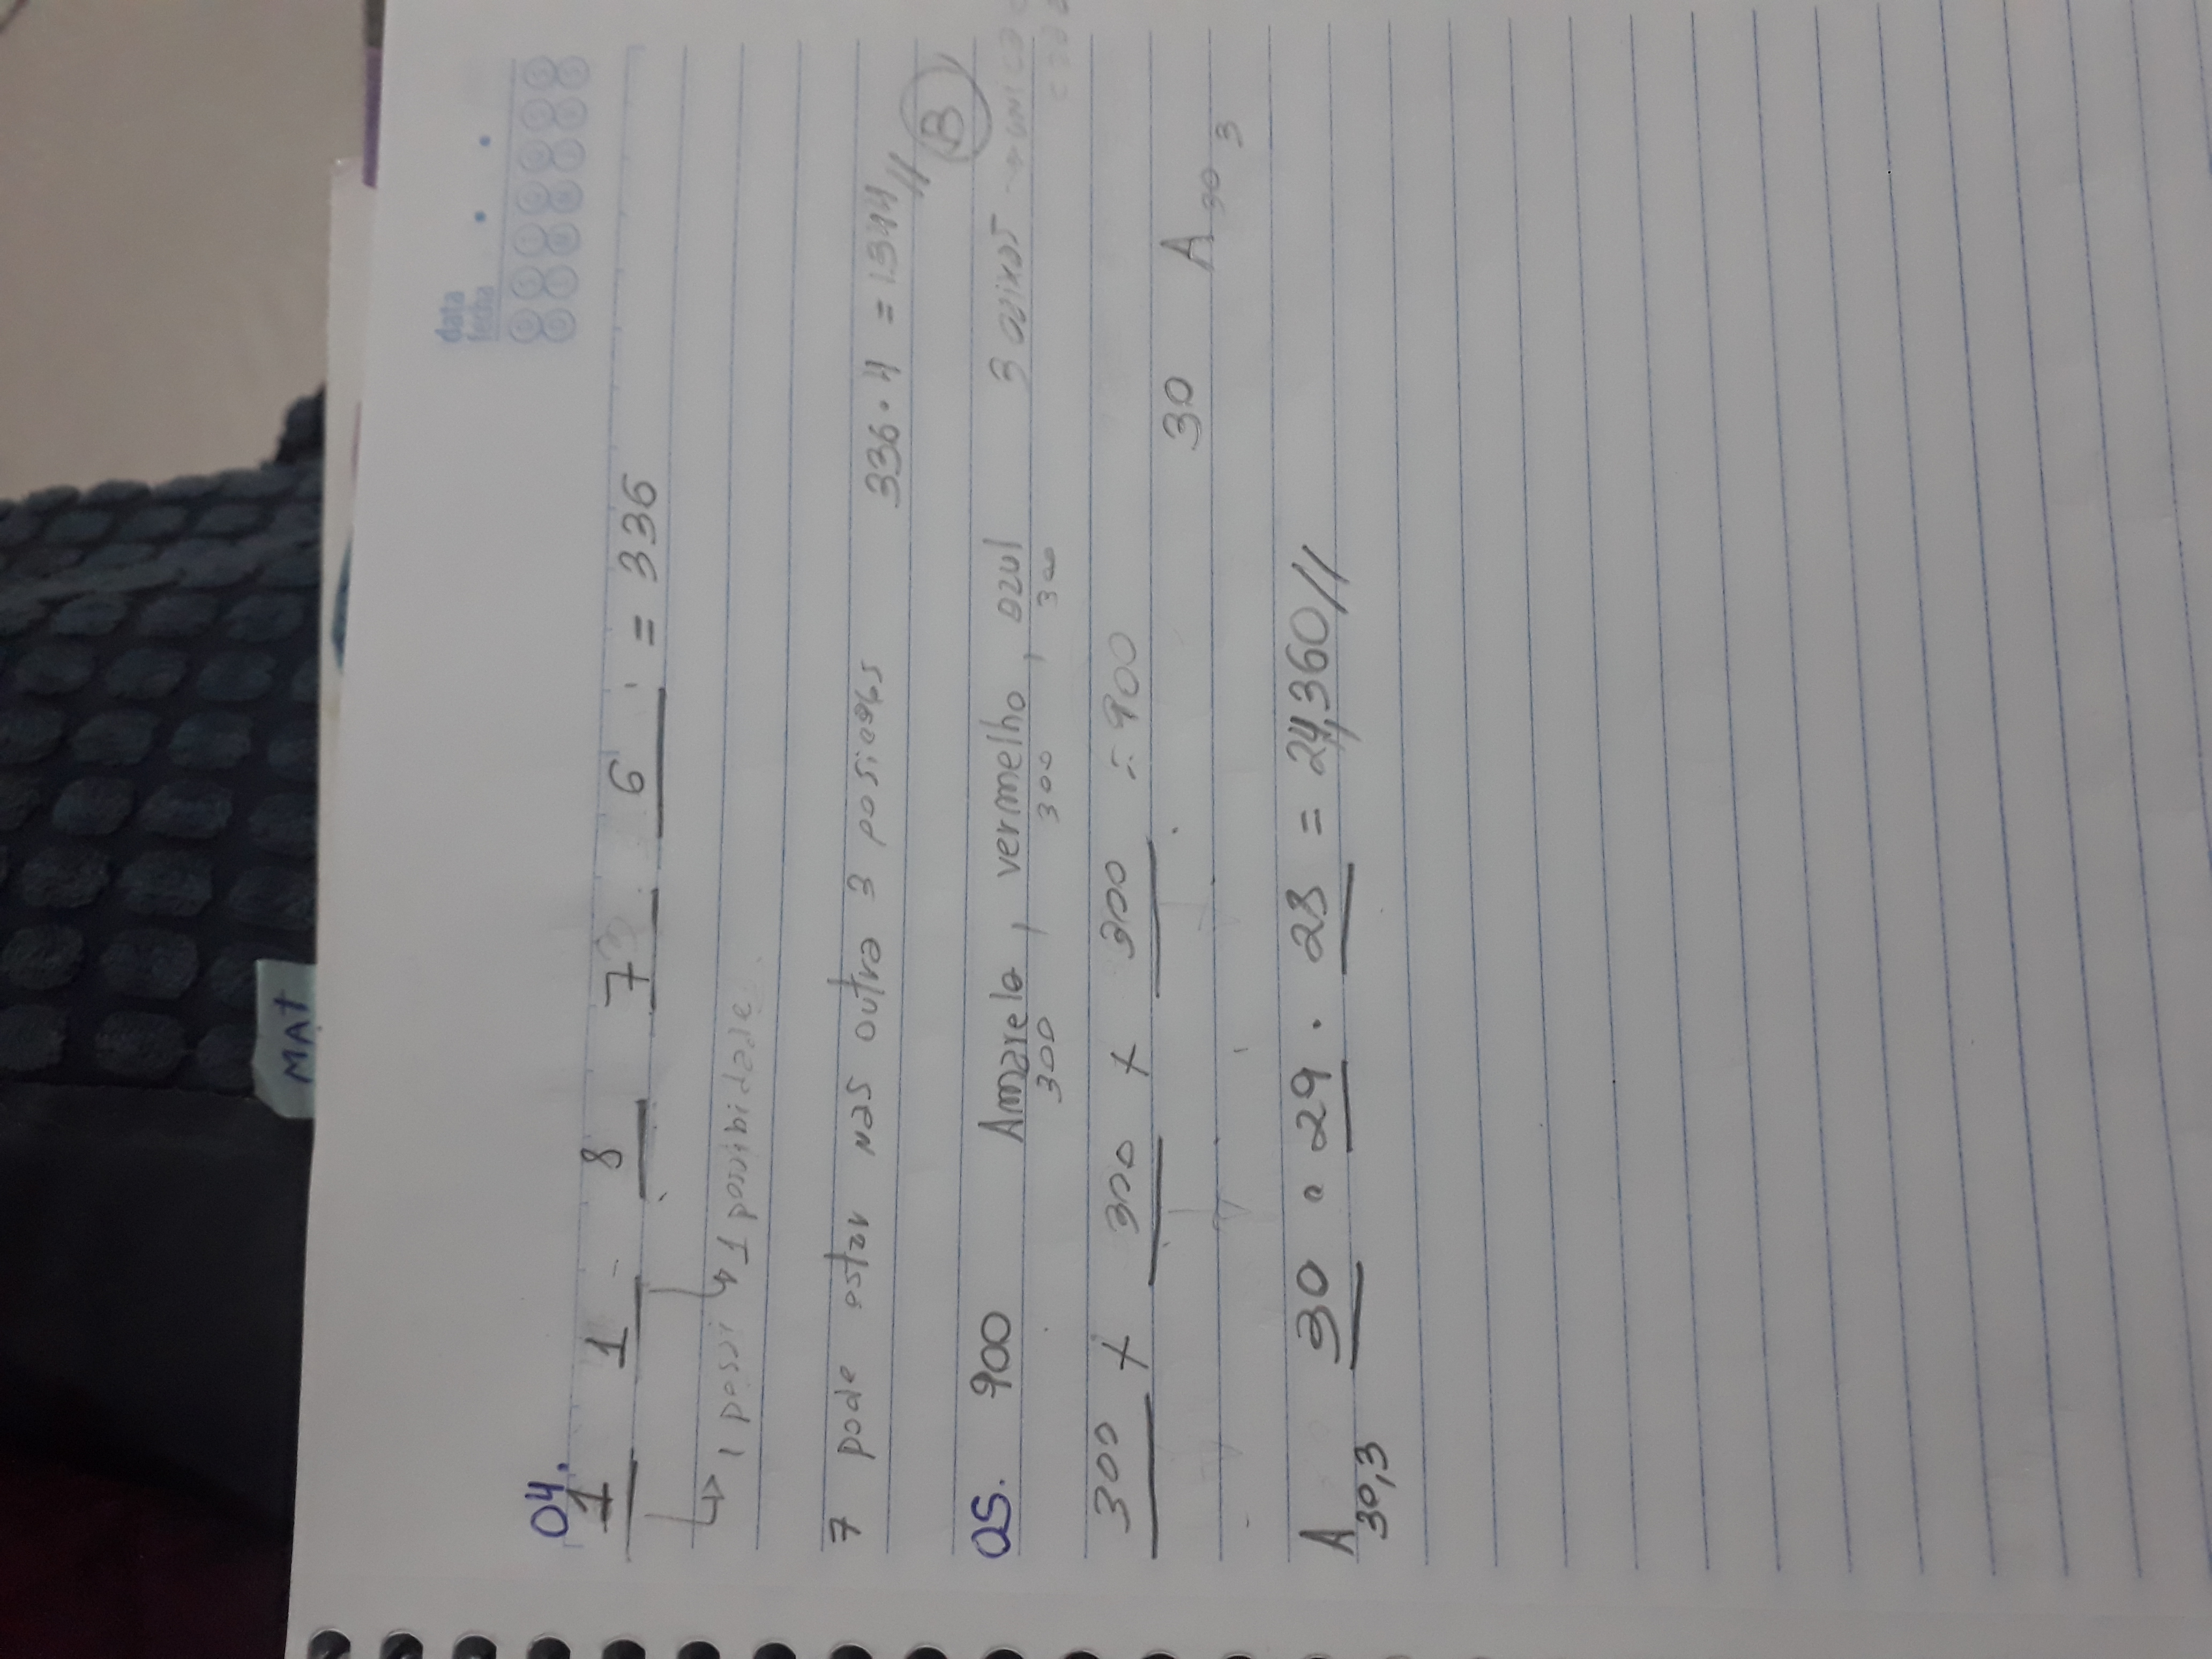 MAT
data
fecha
04.
1 1 8 7 6 = 336
1 possi 1 possibidade
7 pode estar nas outra 3 posicoes 336 . 4 = 1.344 //
B
05. 900 Amarelo, vermelho, azul 3 caixas
300 300 300
300 + 300 + 300 = 900
30 A 30 3
A 30,3 30 . 29 . 28 = 24,360 //